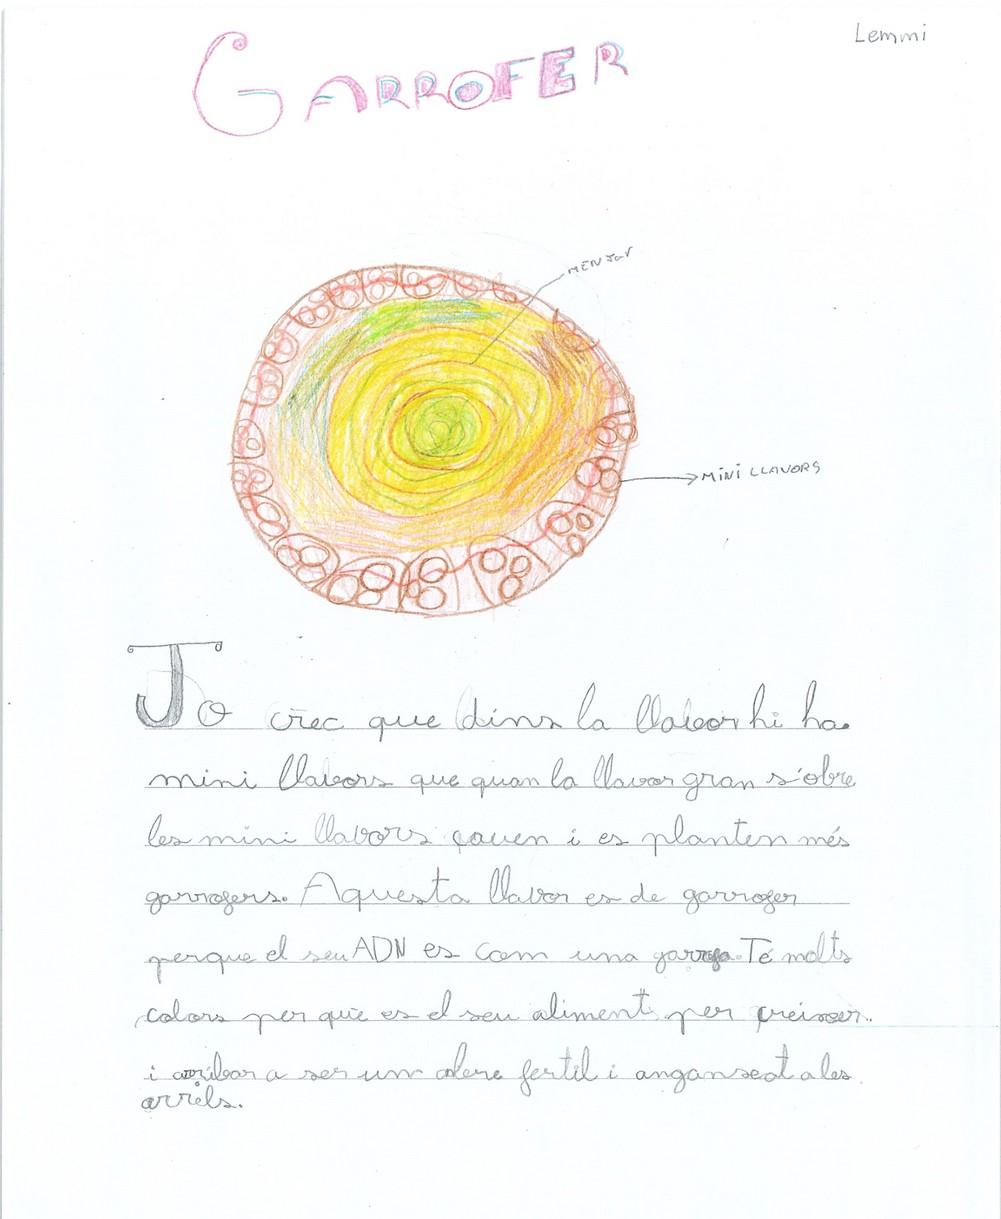 Lemmi
GARROFER
MENJAr
MiNi LLAVORS
Jo crec que dins la llavor hi ha
mini llavors que quan la llavor gran s'obre
les mini llavors cauen i es planten més
garrofers. Aquesta llavor es de garrofer
perque el seu ADN es com una garrofa. Té molts
colors per què es el seu aliment per creixer.
i arribar a ser un abre fertil i anganxat ales
arrels.